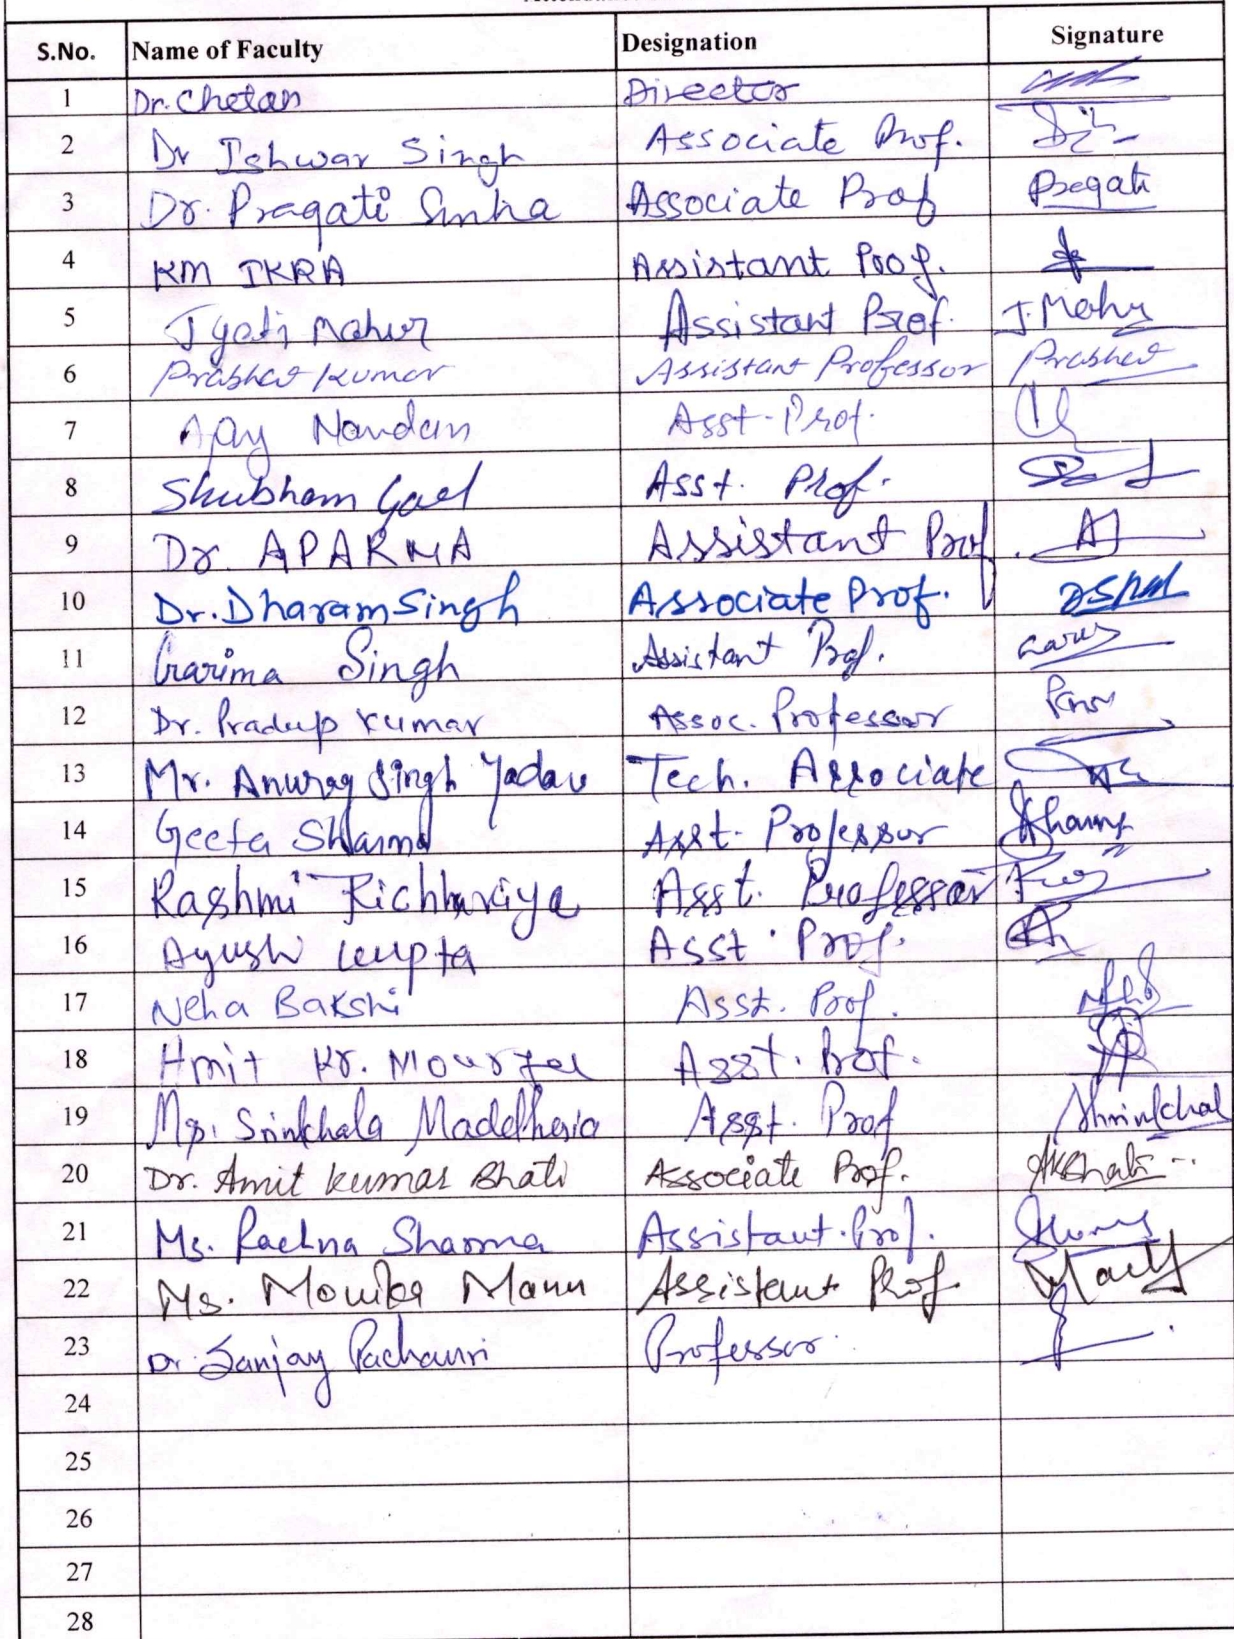 S.No. Name of Faculty Designation Signature
1 Dr. Chetan Director
2 Dr Ishwar Singh Associate Prof.
3 Dr. Pragati Sinha Associate Prof Pragati
4 KM IKRA Assistant Prof.
5 Jyoti Mahur Assistant Prof. J. Mahur
6 Prabhat Kumar Assistant Professor Prabhat
7 Ajay Nandan Asst. Prof.
8 Shubham Goel Asst. Prof.
9 Dr. APARNA Assistant Prof.
10 Dr. Dharam Singh Associate Prof.
11 Garima Singh Assistant Prof.
12 Dr. Pradeep Kumar Assoc. Professor
13 Mr. Anurag Singh Yadav Tech. Associate
14 Geeta Sharma Asst. Professor
15 Rashmi Richhariya Asst. Professor
16 Ayushi Gupta Asst. Prof.
17 Neha Bakshi Asst. Prof.
18 Amit Kr. Asst. Prof.
19 Ms. Srinkhala Maddhesia Asst. Prof
20 Dr. Amit Kumar Bhati Associate Prof.
21 Ms. Rachna Sharma Assistant Prof.
22 Ms. Monika Mann Assistant Prof.
23 Dr. Sanjay Pachauri Professor
24
25
26
27
28